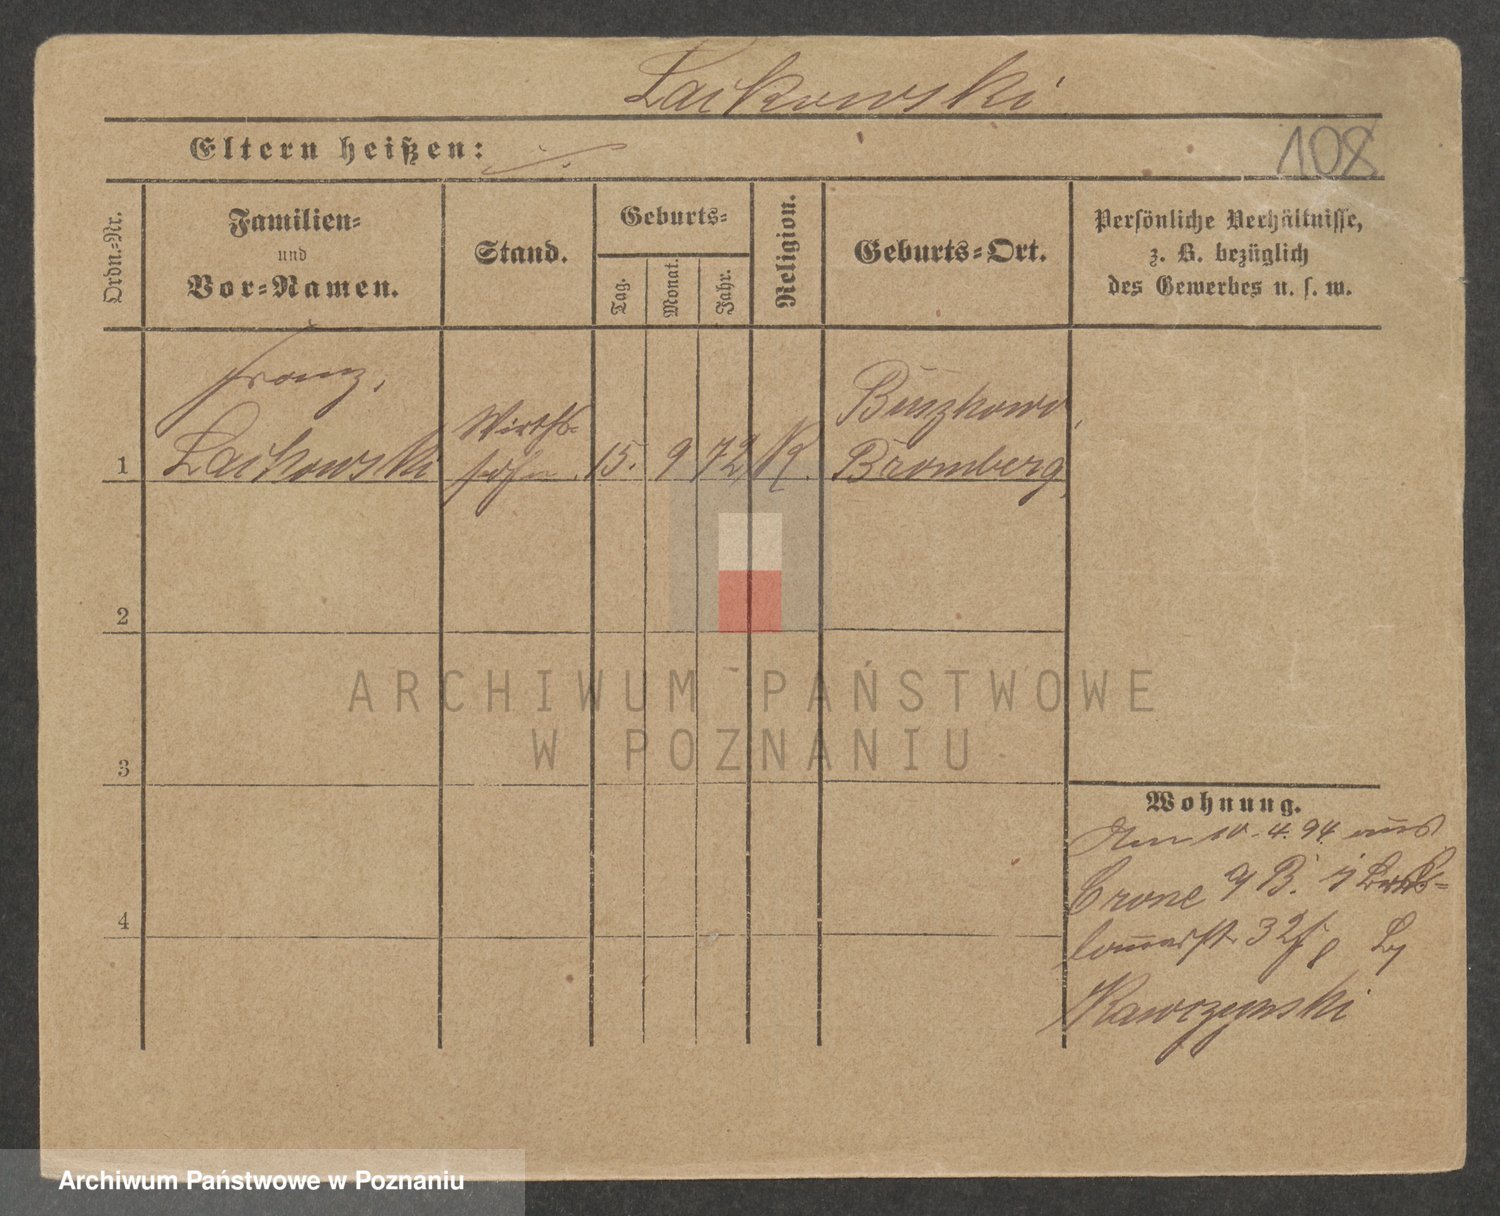 Laikowski
Eltern heißen:
108
Ordn.-Nr.
Familien-
und
Vor-Namen.
Stand.
Geburts-
Tag.
Monat.
Jahr.
Religion.
Geburts-Ort.
Persönliche Verhältnisse,
z. B. bezüglich
des Gewerbes u. s. w.
1
Franz,
Laikowski
Wirths-
sohn.
15.
9
72
K.
Buszkowo,
Bromberg,
2
3
4
Wohnung.
Am 10.4.94 aus
Crone a/B.
32
Kawczynski
ARCHIWUM PAŃSTWOWE
W POZNANIU
Archiwum Państwowe w Poznaniu